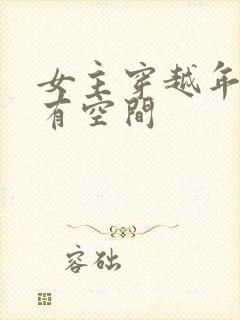 女主穿越年
有空间
容础